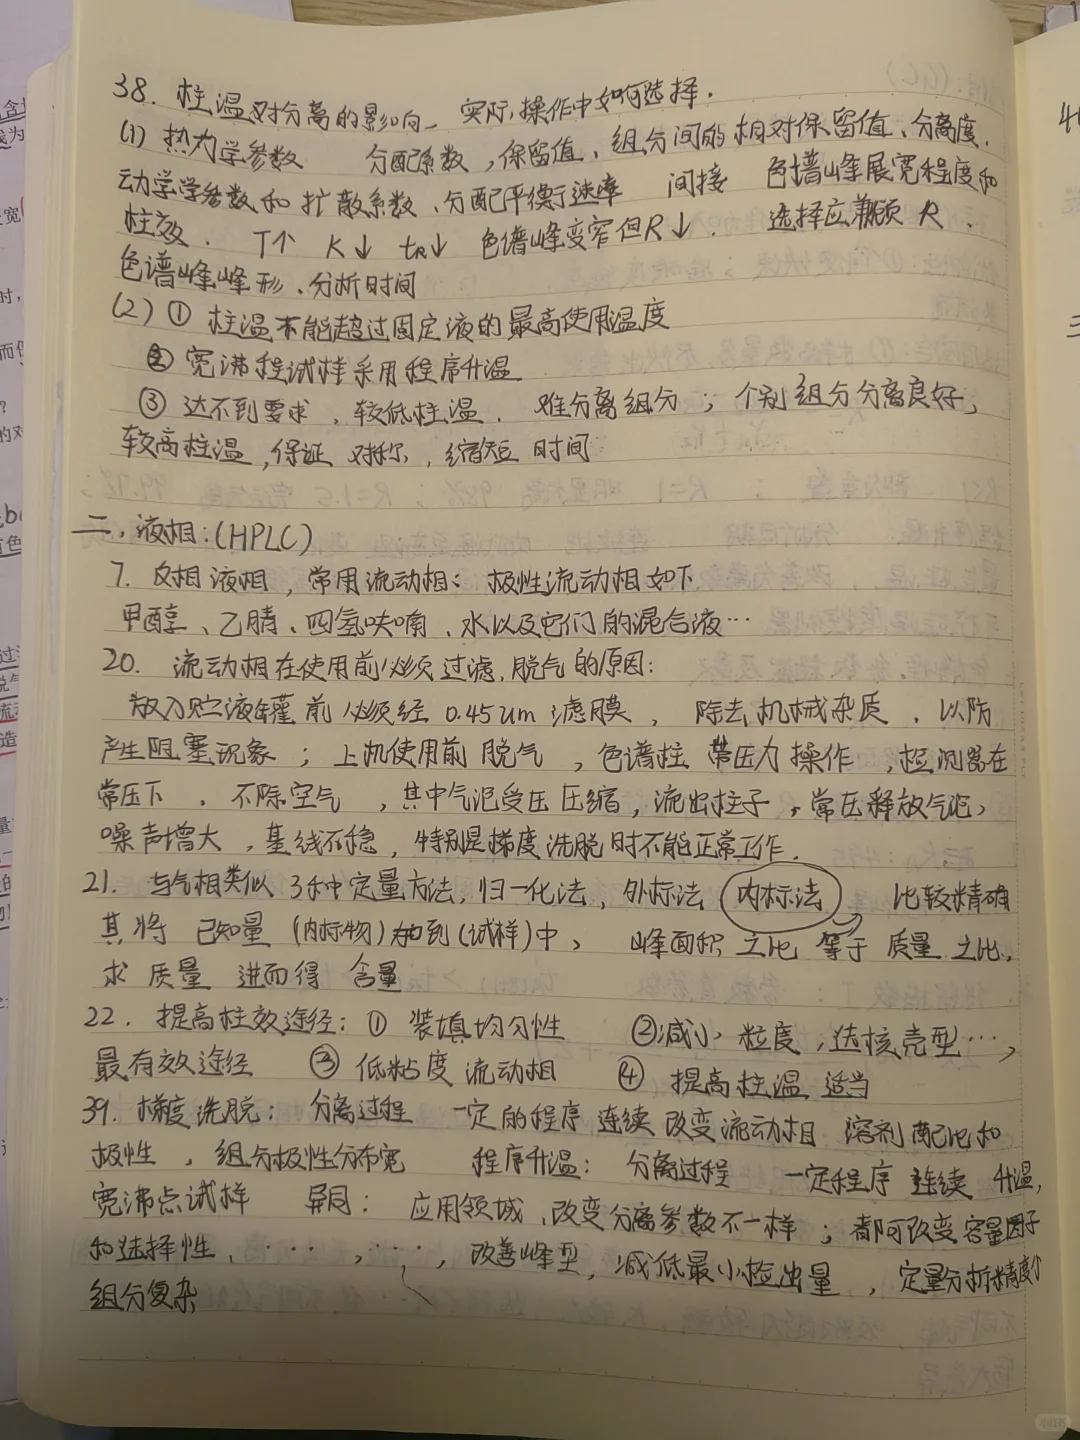 38. 柱温对分离的影响、实际操作中如何选择.
(1) 热力学参数 分配系数,保留值、组分间的相对保留值、分离度.
动学学参数和扩散系数、分配平衡速率 间接 色谱峰展宽程度和
柱效. T↑ K↓ tR↓ 色谱峰变窄但R↓. 选择应兼顾 R、
色谱峰峰形、分析时间
(2) ① 柱温不能超过固定液的最高使用温度
② 宽沸程试样采用程序升温
③ 达不到要求,较低柱温. 难分离组分;个别组分分离良好,
较高柱温,保证 对称,缩短 时间
二、液相:(HPLC)
7. 反相液相,常用流动相: 极性流动相如下
甲醇、乙腈、四氢呋喃、水以及它们的混合液…
20. 流动相在使用前必须过滤,脱气的原因:
放入贮液罐前必须经 0.45um 滤膜, 除去机械杂质,以防
产生阻塞现象;上机使用前脱气,色谱柱 带压力操作,检测器在
常压下,不除空气,其中气泡受压压缩,流出柱子,常压释放气泡,
噪声增大,基线不稳,特别是梯度洗脱时不能正常工作.
21. 与气相类似 3种定量方法,归一化法,外标法 内标法 比较精确
其将 已知量(内标物)加到(试样)中, 峰面积之比 等于 质量之比,
求 质量 进而得 含量
22. 提高柱效途径:① 装填均匀性 ②减小粒度,选核壳型…,
最有效途径 ③ 低粘度 流动相 ④ 提高柱温 适当
39. 梯度洗脱: 分离过程 一定的程序 连续改变流动相 溶剂配比和
极性,组分极性分布宽 程序升温: 分离过程 一定程序 连续 升温,
宽沸点试样 异同: 应用领域、改变分离参数不一样;都可改变容量因子
和选择性、…,…,改善峰型,减低最小检出量,定量分析精度↑
组分复杂